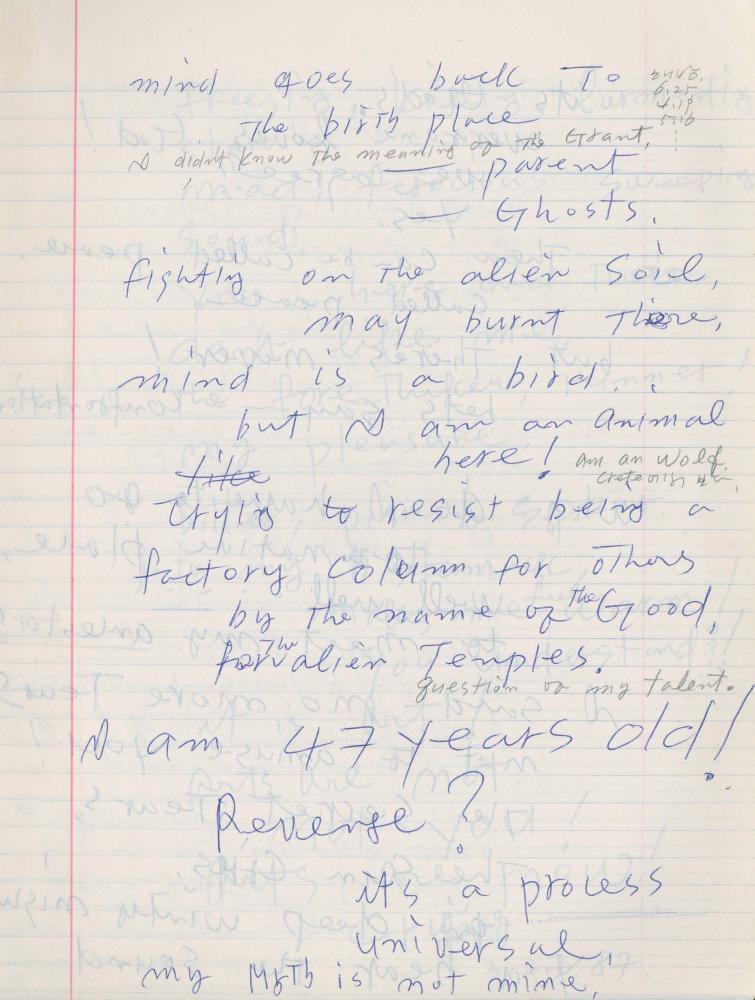 mind goes back To
The birth place
I didn't know The meaning of The Grant,
— parent
— Ghosts.
fightin on The alien Soil,
may burnt There,
mind is a bird,
but I am an animal
here!
am an wolf,
like
trying to resist being a
factory column for others
by The name of The Good,
for The alien Temples.
question or my talent.
I am 47 years old!
Revenge?
its a process
universal,
my Myth is not mine,